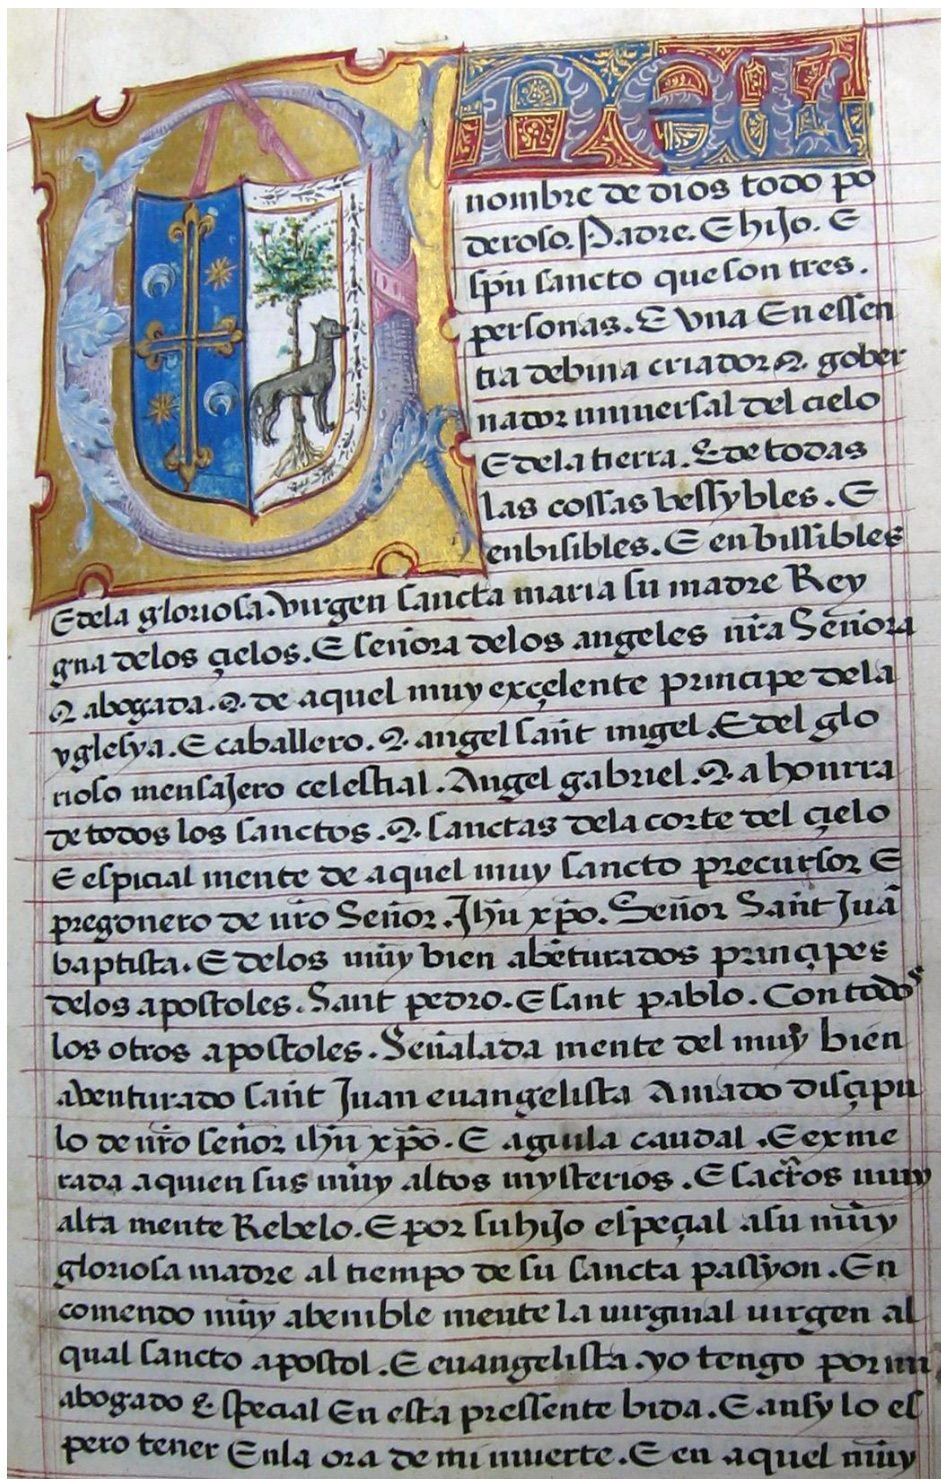 En el
nombre de dios todo po
deroso. Padre. E hijo. E
spũ sancto que son tres.
personas. E vna En essen
tia debina criador ꝛ. gober
nador uniuersal del cielo
E de la tierra. E de todas
las cossas bessybles. E
enbisibles. E enbissibles
E dela gloriosa. virgen sancta maria su madre Rey
gna delos çielos. E señora delos angeles nr̃a Señora
ꝛ abogada. ꝛ. de aquel muy exçelente principe de la
yglesya. E caballero. ꝛ. angel sant migel. E del glo
rioso mensajero celestial. Angel gabriel. ꝛ a honrra
de todos los sanctos. ꝛ. sanctas dela corte del çielo
E espicial mente de aquel muy sancto precursor E
pregonero de nr̃o Señor. Jhũ xp̃o. Señor Sant Juã
baptista. E delos muy bien abẽturados prinçipes
delos apostoles. Sant pedro. E sant pablo. Con todos
los otros apostoles. Señalada mente del muy bien
aventurado sant Juan euangelista Amado disçipu
lo de nr̃o señor ihũ xp̃o. E aguila caudal. E exme
rada a quien sus muy altos mysterios. E sacr̃os muy
alta mente Rebelo. E por su hijo espeçal a su muy
gloriosa madre al tiempo de su sancta passyon. En
comendo muy abenible mente la uirginal uirgen al
qual sancto apostol. E euangelista. yo tengo por mi
abogado E special En esta pressente bida. E ansy lo es
pero tener En la ora de mi muerte. E en aquel muy